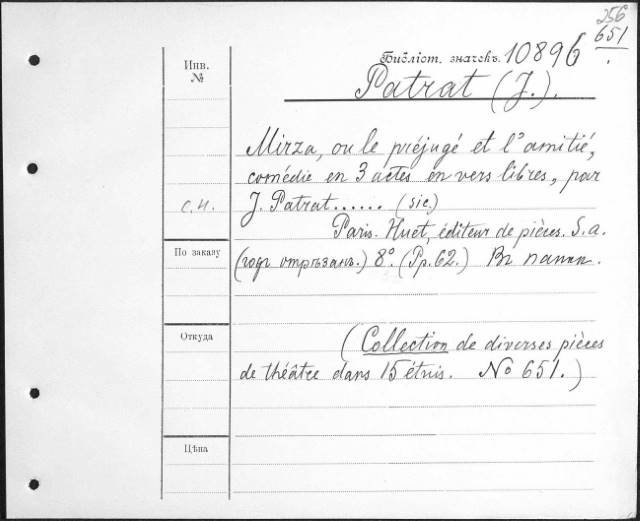 256
651
Инв.
№
Библіот. значекъ. 10896
Patrat (J.).
Mirza, ou le préjugé et l'amitié,
comédie en 3 actes en vers libres, par
с.н. J. Patrat...... (sic.)
Paris. Huet, éditeur de pièces. S.a.
По заказу
(годъ отрѣзанъ.) 8º. (Pp. 62.) Въ папкѣ.
Откуда
(Collection de diverses pièces
de théâtre dans 15 étuis. No 651.)
Цѣна